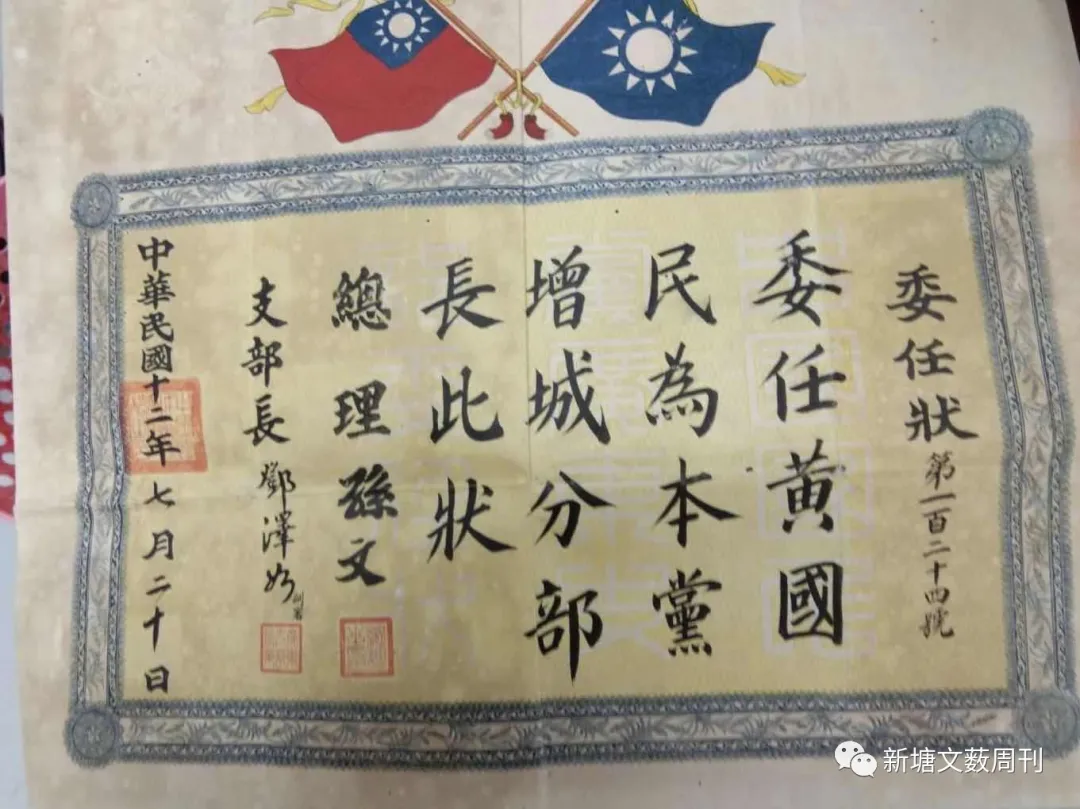 委任狀
第一百二十四號
委任黃國
民為本黨
增城分部
長此狀
總理孫文
支部長鄧澤如
中華民國十二年七月二十日
新塘文薮周刊